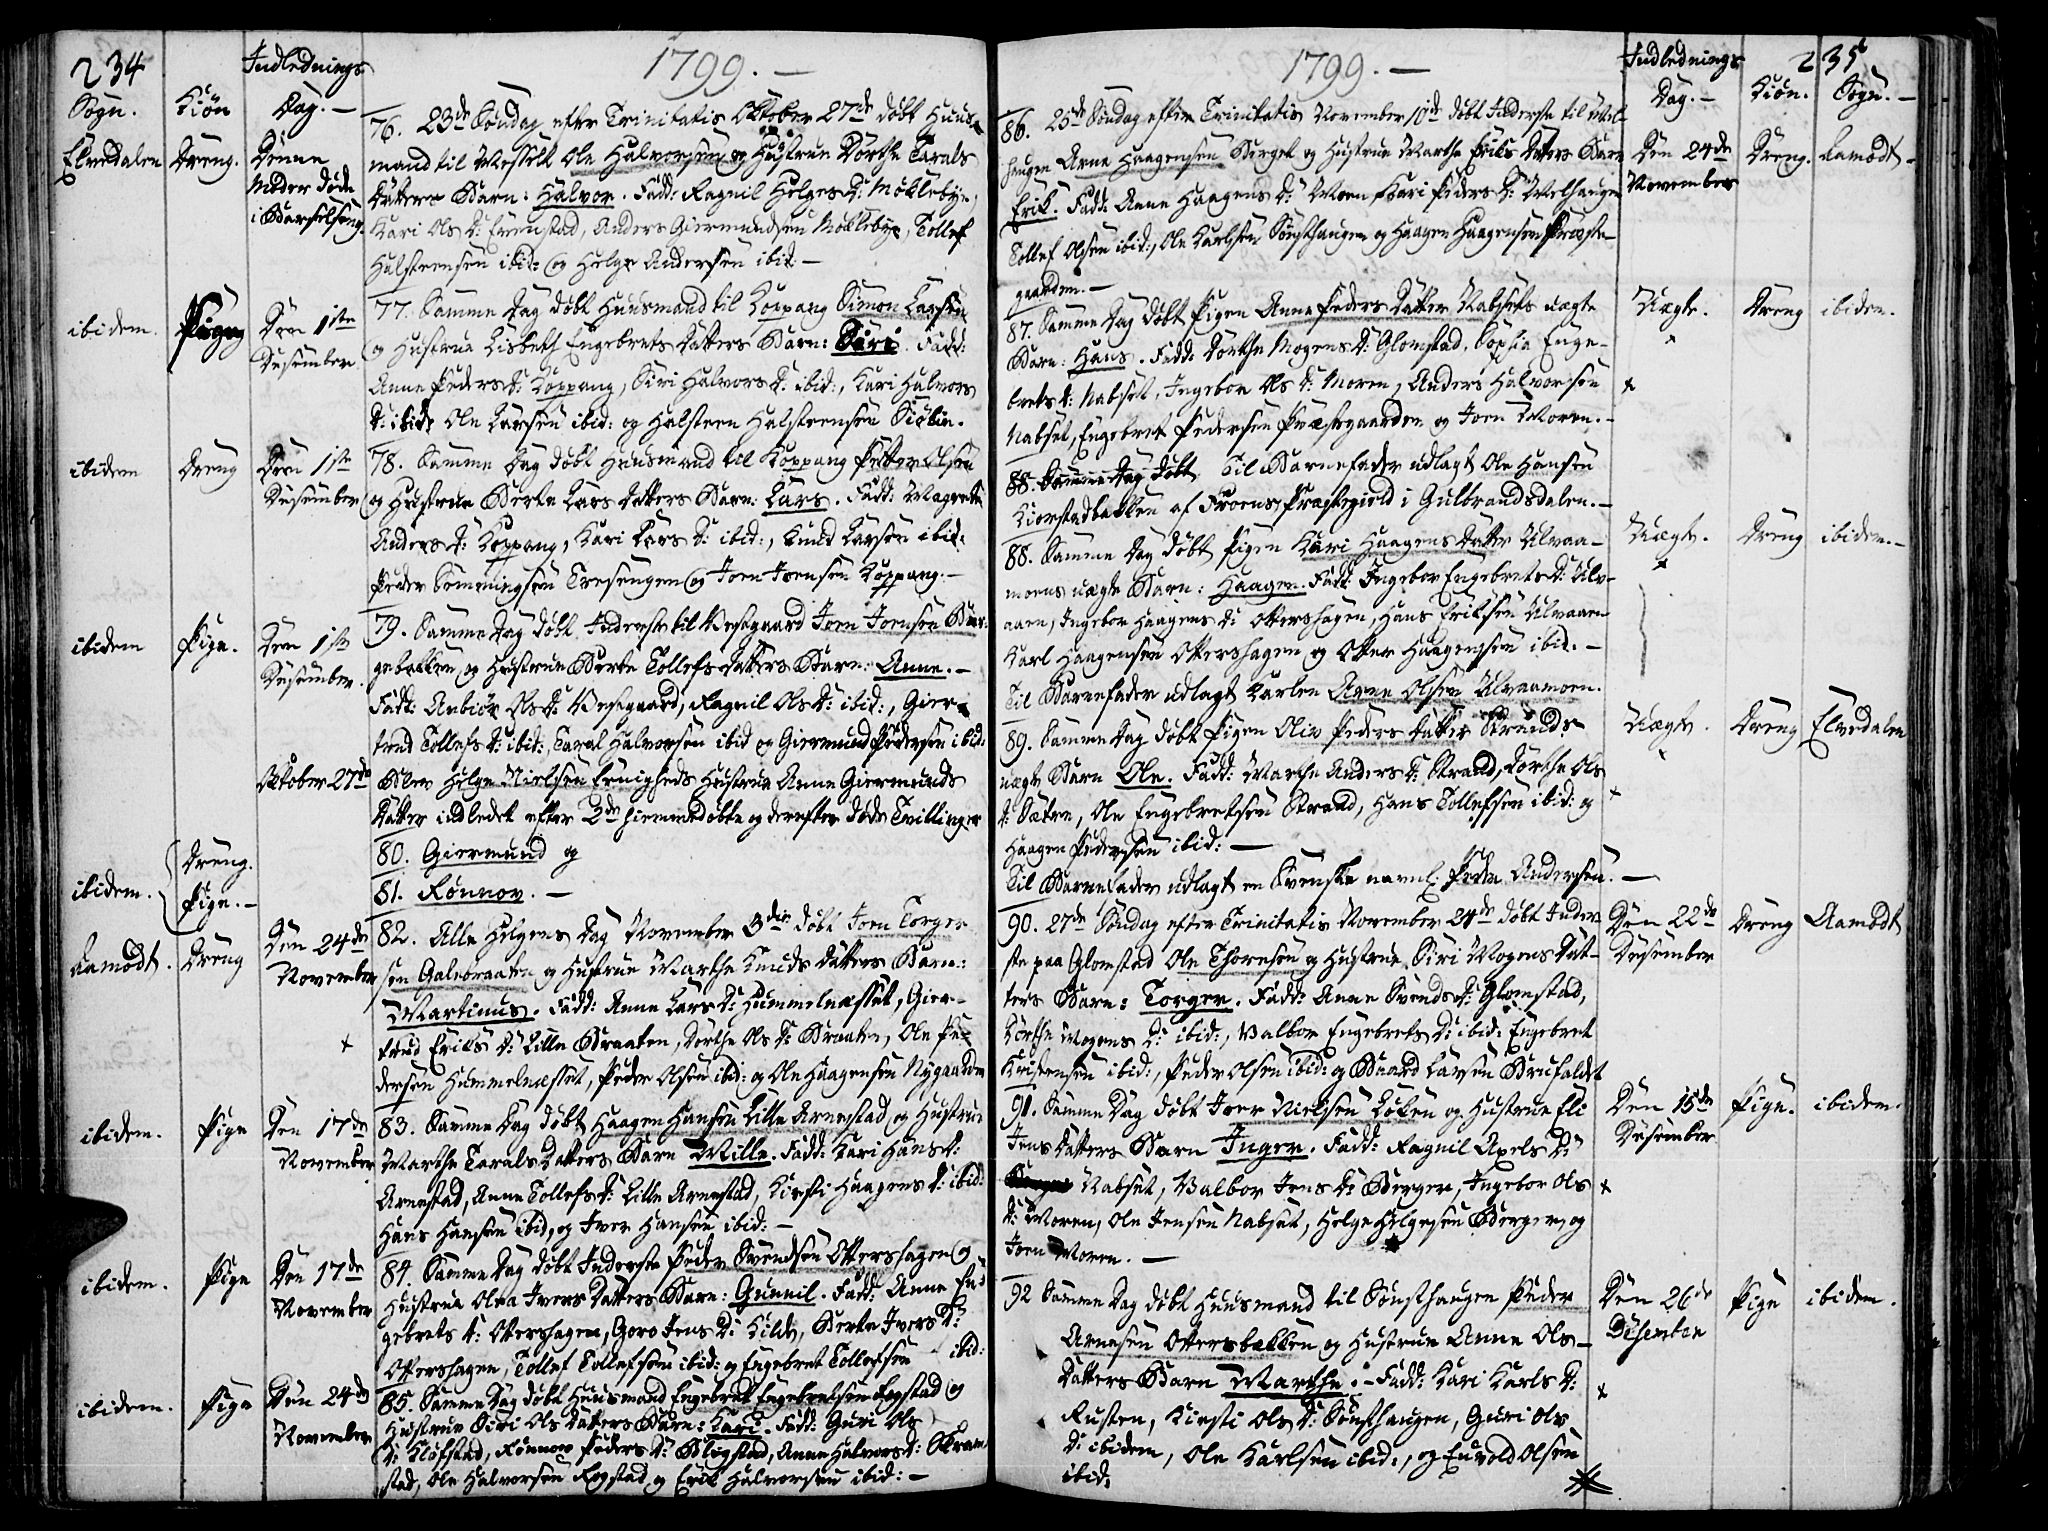 234
Indlednings
1799. —
Sogn.
Kiön
Dag. —
76. 23de Söndag efter Trinitatis Oktober 27de döbt Huus-
Elvedalen
Dreng.
Denne
Moder döde
i Barselseng.
mand til Messelt Ole Halvorsen og Hustrue Dorthe Tarals
Datters Barn: Halvor. Fadd: Ragnil Helges D: Möklebye,
Kari Ols D: Evenstad, Anders Giermundsen Möklebye, Tollef
Halsteensen ibid: og Helge Andersen ibid —
ibidem.
Pige
Den 1ste
Desember
77. Samme Dag döbt Huusmand til Koppang Simon Larsen
og Hustrue Lisbeth Engebrets Datters Barn: Siri. Fadd:
Anne Peders D: Koppang, Siri Halvors D: ibid:, Kari Halvors
D: ibid: Ole Larsen ibid: og Halsteen Halsteensen Siölie.
ibidem
Dreng
Den 1ste
Desember
78. Samme Dag döbt Huusmand til Koppang Petter Olsen
og Hustrue Berte Lars Datters Barn: Lars. Fadd: Magrette
Anders D: Koppang, Kari Lars D: ibid:, Knud Larsen ibid:
Peder Semmingsen Tresengen og Joen Joensen Koppang. —
ibidem
Pige.
Den 1ste
Desember.
79. Samme Dag döbt Inderste til Vestgaard Joen Joensen Ber-
gebakken og Hustrue Berte Tollefs Datters Barn: Anne. —
Fadd: Anbiör Ols D: Vestgaard, Ragnil Ols D: ibid:, Gier-
trud Tollefs D: ibid: Taral Halvorsen ibid og Giermund Pedersen ibid:
Oktober 27de
Blev Helge Nielsen Enigheds Hustrue Anne Giermunds
Datter indledet efter 2de hiemmedöbte og derefter döde Tvillinger
ibidem.
Dreng.
Pige. —
80. Giermund og
81. Rönnov. —
Aamodt.
Dreng
Den 24de
November
82. Alle Helgens Dag November 3die döbt Joen Torger
sen Galvraaten og Hustrue Marthe Knuds Datters Barn:
Martinus. Fadd: Anne Lars D: Hummelnesset, Gier-
trud Eriks D: Lille Braaten, Dorthe Ols D: Braaten, Ole Pe-
dersen Hummelnesset, Peder Olsen ibid: og Ole Haagensen Nygaarden
ibidem.
Pige
Den 17de
November
83. Samme Dag döbt Haagen Hansen Lille Arnestad og Hustrue
Marthe Tarals Datters Barn Mille. Fadd: Kari Hans D:
Arnestad, Anne Tollefs D: Lille Arnestad, Kiersti Haagens D: ibid:
Hans Hansen ibid, og Iver Hansen ibid: —
ibidem.
Pige
Den 17de
November
84. Samme Dag döbt Inderste Peder Svendsen Ottershagen og
Hustrue Olea Ivers Datters Barn: Gunnil. Fadd: Anne En-
gebrets D: Ottershagen, Goro Jens D: Kilde, Berte Ivers D:
Ottershagen, Tollef Tollefsen ibid: og Engebret Tollefsen ibid:
ibidem.
Pige
Den 24de
November
85. Samme Dag döbt Huusmand Engebret Engebretsen Rogstad og
Hustrue Siri Ols Datters Barn: Kari. Fadd: Guri Ols
D: Klöfstad, Rönnov Peders D: Klogstad, Anne Halvors D: Skram-
stad, Ole Halvorsen Rogstad og Erik Halvorsen ibid: —
1799. —
Indlednings
235
Dag. —
Kiön.
Sogn. —
86. 25de Söndag efter Trinitatis November 10de döbt Inderste til Mel-
haugen Arne Haagensen Berget og Hustrue Marthe Eriks Datters Barn
Erik. Fadd: Anne Haagens D: Moen Kari Peders D: Melhaugen
Tollef Olsen ibid:, Ole Karlsen Sönsthaugen og Haagen Haagensen Præste-
gaarden. —
Den 24de
November
Dreng.
Aamodt —
87. Samme Dag döbt Pigen Anne Peders Datter Nabsets uægte
Barn: Hans. Fadd: Dorthe Mogens D: Glomstad, Sophia Enge-
brets D: Nabset, Ingebor Ols D: Moren, Anders Halvorsen
Nabset, Engebret Pedersen Præstegaarden og Joen Moren. —
Uægte.
Dreng
ibidem.
88. Samme Dag döbt Til Barnefader udlagt Ole Hansen
Kierstadbakken af Froens Præstegield i Gulbrandsdalen. —
88. Samme Dag döbt Pigen Kari Haagens Datter Ulvaa-
moens uægte Barn: Haagen. Fadd: Ingebor Engebrets D: Ulv-
aaen, Ingebor Haagens D: Ottershagen, Hans Eriksen Ulvaaen
Karl Haagensen Ottershagen og Otter Haagensen ibid. —
Til Barnefader udlagt Karlen Arne Olsen Ulvaamoen.
Uægte.
Dreng
ibidem. —
89. Samme Dag döbt Pigen Oliv Peders Datter Strands
uægte Barn Ole. Fadd: Marthe Anders D: Strand, Dorthe Ols
D: Sætre, Ole Engebretsen Strand, Hans Tollefsen ibid: og
Haagen Pedersen ibid: —
Til Barnefader udlagt en Svenske navnl. Peder Andersen. —
Uægte.
Dreng
Elvedalen
90. 27de Söndag efter Trinitatis November 24de döbt Inder
ste paa Glomstad Ole Thoresen og Hustrue Siri Mogens Dat-
ters Barn: Torger. Fadd: Anne Svends D: Glomstad,
Dorthe Mogens D: ibid:, Valbor Engebrets D: ibid: Engebret
Kristensen ibid:, Peder Olsen ibid: og Baard Larsen Brufaldet
Den 22de
Desember
Dreng
Aamodt
91. Samme Dag döbt Iver Nielsen Löken og Hustrue Eli
Jens Datters Barn Inger. Fadd: Ragnil Axels D:
Nabset, Valbor Jens D: Berger, Ingebor Ols
D: Moren, Ole Jensen Nabset, Helge Helgesen Berger, og
Joen Moren. —
Den 15de
Desember
Pige.
ibidem.
92 Samme Dag döbt Huusmand til Sönsthaugen Peder
Arnesen Ottersbakken og Hustrue Anne Ols-
Datters Barn Marthe. — Fadd: Kari Karls D:
Rusten, Kiersti Ols D: Sönsthaugen, Guri Ols
D: ibidem, Ole Karlsen ibid:, og Envold Olsen
ibid.
Den 26de
Desember
Pige
ibidem.